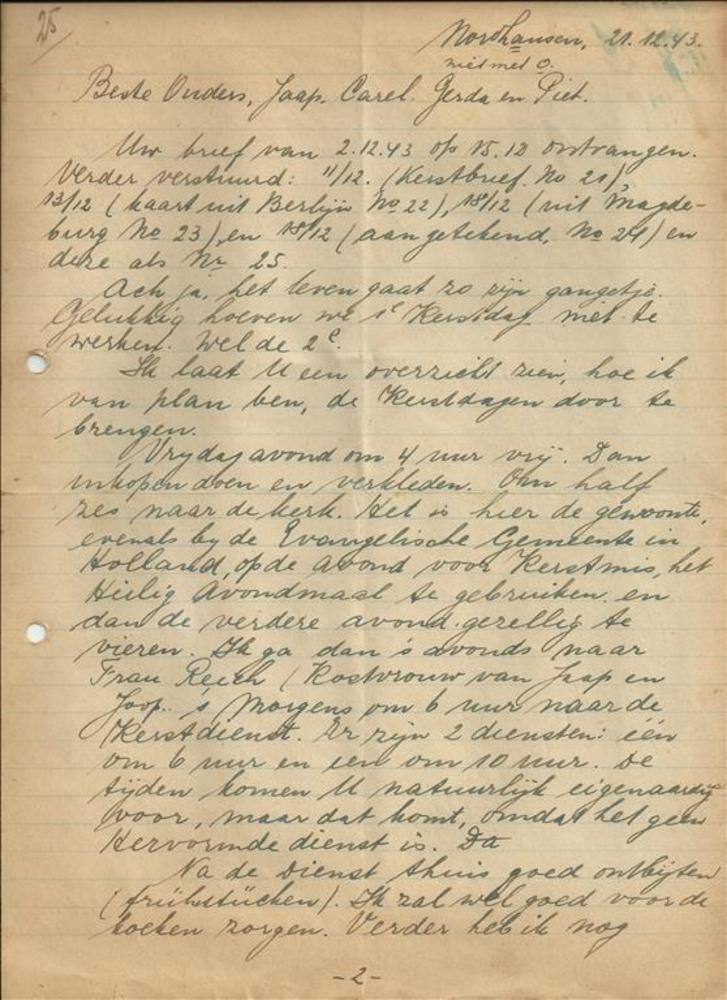 25
Nordhausen, 21.12.43.
niet met o.
Beste Ouders, Jaap, Carel, Gerda en Piet.
Uw brief van 2.12.43 op 15.12 ontvangen.
Verder verstuurd: 11/12. (Kerstbrief. No 21),
13/12 (kaart uit Berlijn No 22), 18/12 (uit Magde-
burg No 23), en 18/12 (aangetekend, No 24) en
deze als Nr 25.
Ach ja, het leven gaat zo zijn gangetje.
Gelukkig hoeven we 1e Kerstdag niet te
werken. Wel de 2e.
Ik laat U een overzicht zien, hoe ik
van plan ben, de Kerstdagen door te
brengen.
Vrydagavond om 4 uur vrij. Dan
inkopen doen en verkleden. Om half
zes naar de kerk. Het is hier de gewoonte,
evenals by de Evangelische Gemeente in
Holland, op de avond voor Kerstmis, het
Heilig Avondmaal te gebruiken en
dan de verdere avond gezellig te
vieren. Ik ga dan 's avonds naar
Frau Reich (Kostvrouw van Jaap en
Joop. 's Morgens om 6 uur naar de
Kerstdienst. Er zijn 2 diensten: één
om 6 uur en een om 10 uur. De
tijden komen U natuurlijk eigenaardig
voor, maar dat komt, omdat het geen
Hervormde dienst is. Da
Na de Dienst thuis goed ontbijten
(frühstücken). Ik zal wel goed voor de
koeken zorgen. Verder heb ik nog
-2-